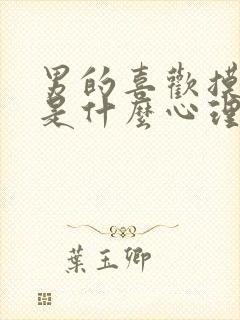 男的喜歡摸
是什麼心理
葉玉卿